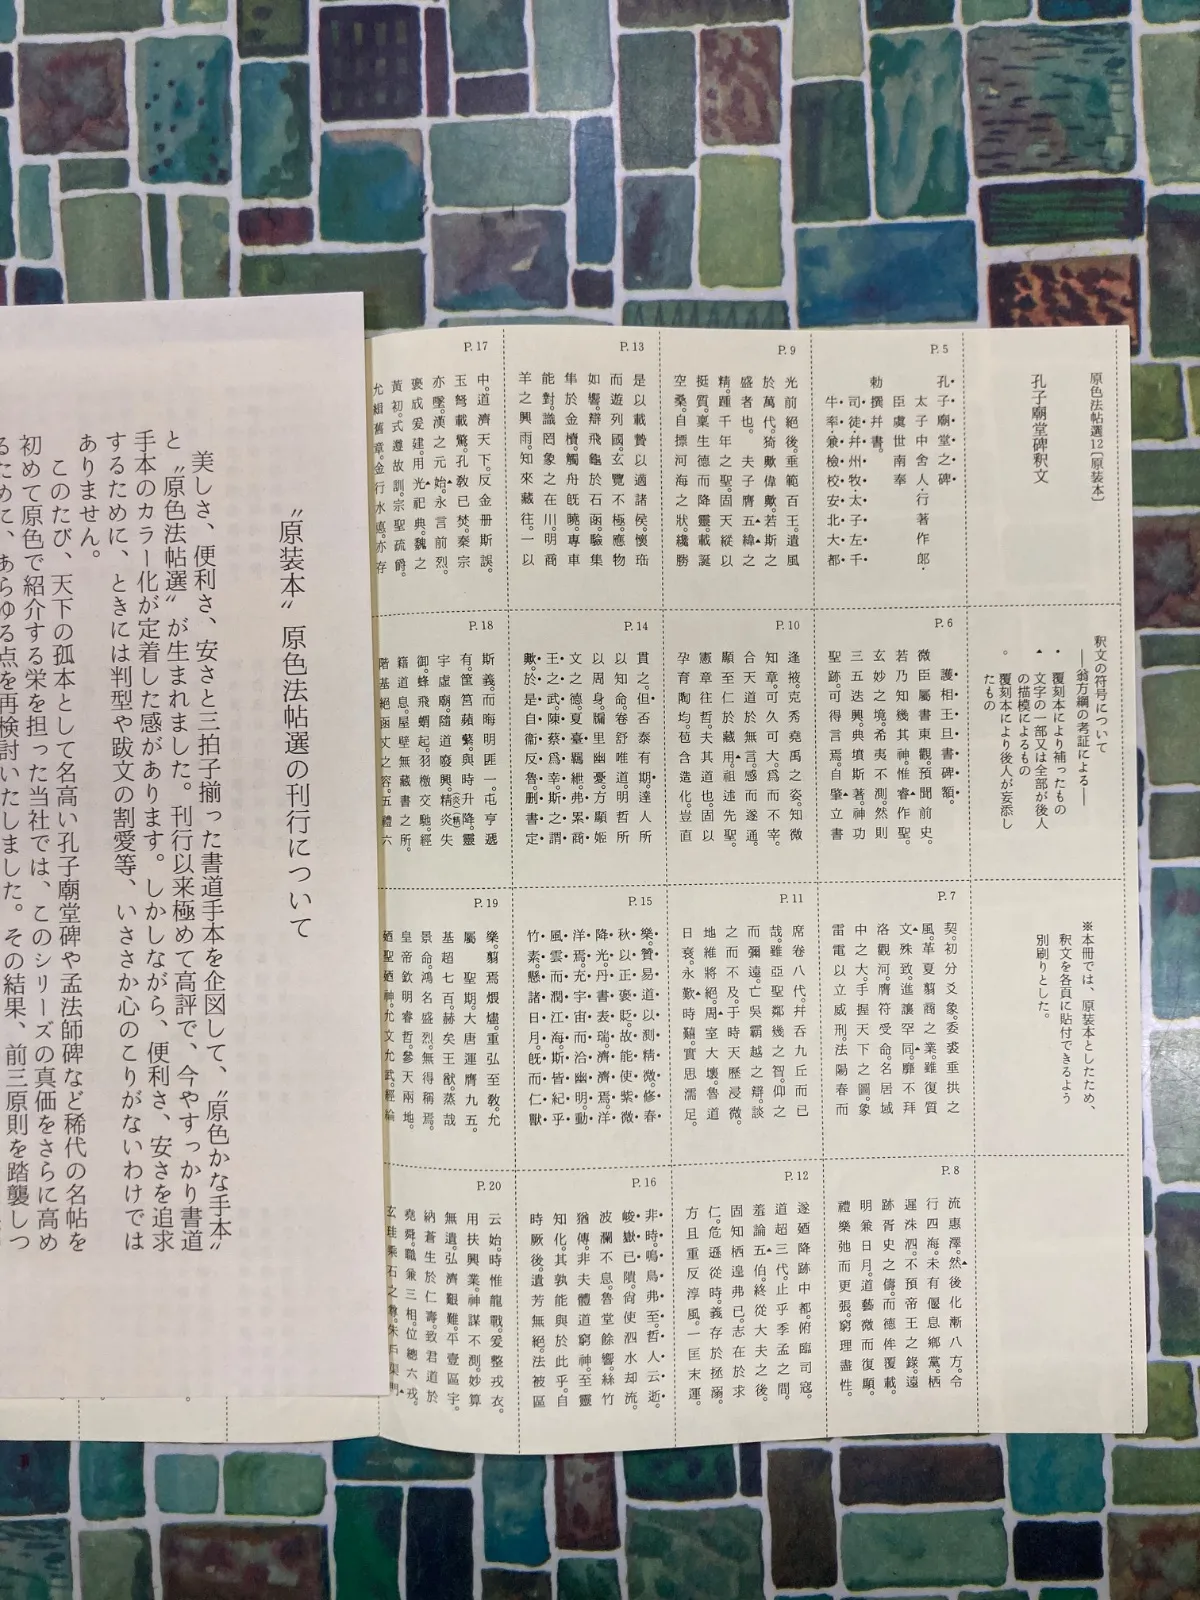 原色法帖選12〔原装本〕
孔子廟堂碑釈文
釈文の符号について
―翁方綱の考証による―
・ 覆刻本により補ったもの
▲ 文字の一部又は全部が後人
の描模によるもの
。 覆刻本により後人が妄添し
たもの
※本冊では、原装本としたため、
釈文を各頁に貼付できるよう
別刷りとした。
P.5
孔子廟堂之碑
太子中舍人行著作郎
臣虞世南奉
勅撰幷書。
司徒幷州牧太子左千
牛率兼檢校安北大都
P.6
護相王旦書碑額。
微臣屬書東觀。預聞前史。
若乃知幾其神。惟睿作聖。
玄妙之境。希夷不測。然則
三五迭興。典墳斯著。神功
聖跡。可得言焉。自肇立書
P.7
契。初分爻象。委裘垂拱之
風。革夏翦商之業。雖復質
文殊致。進讓罕同。靡不拜
洛觀河。膺符受命。名居域
中之大。手握天下之圖。象
雷電以立威刑。法陽春而
P.8
流惠澤。然後化漸八方。令
行四海。未有偃息鄉黨。栖
遲洙泗。不預帝王之錄。遠
跡胥史之儔。而德侔覆載。
明兼日月。道藝微而復顯。
禮樂弛而更張。窮理盡性。
P.9
光前絕後。垂範百王。遺風
於萬代。猗歟偉歟。若斯之
盛者也。 夫子膺五緯之
精。踵千年之聖。固天縱以
挺質。稟生德而降靈。載誕
空桑。自摽河海之狀。纔勝
P.10
逢掖。克秀堯禹之姿。知微
知章。可久可大。爲而不宰。
合天道於無言。感而遂通。
顯至仁於藏用。祖述先聖。
憲章往哲。夫其道也。固以
孕育陶均。苞含造化。豈直
P.11
席卷八代。幷吞九丘而已
哉。雖亞聖鄰幾之智。仰之
而彌遠。亡吳霸越之辯。談
之而不及。于時天歷浸微。
地維將絕。周室大壞。魯道
日衰。永歎時囏。實思濡足。
P.12
遂廼降跡中都。俯臨司寇。
道超三代。止乎季孟之間。
羞論五伯。終從大夫之後。
固知栖遑弗已。志在於求
仁。危遜從時。義存於拯溺。
方且重反淳風。一匡末運。
P.13
是以載贄以適諸侯。懷珤
而遊列國。玄覽不極。應物
如響。辯飛龜於石函。驗集
隼於金櫝。觸舟旣曉。專車
能對。識罔象之在川。明商
羊之興雨。知來藏往。一以
P.14
貫之。但否泰有期。達人所
以知命。卷舒唯道。明哲所
以周身。牖里幽憂。方顯姬
文之德。夏臺羈紲。弗累商
王之武。陳蔡爲幸。斯之謂
歟。於是自衞反魯。刪書定
P.15
樂。贊易道以測精微。修春
秋以正褒貶。故能使紫微
降光。丹書表瑞。濟濟焉。洋
洋焉。充宇宙而洽幽明。動
風雲而潤江海。斯皆紀乎
竹素。懸諸日月。旣而仁獸
P.16
非時。鳴鳥弗至。哲人云逝。
峻嶽已隤。尙使泗水却流。
波瀾不息。魯堂餘響。絲竹
猶傳。非夫體道窮神。至靈
知化。其孰能與於此乎。自
時厥後。遺芳無絕。法被區
P.17
中。道濟天下。反金册斯誤。
玉弩載驚。孔敎已焚。秦宗
亦墜。漢之元始。永言前烈。
褒成爰建。用光祀典。魏之
黃初。式遵故訓。宗聖疏爵。
允緝舊章。金行水悳。亦存
P.18
斯義。而晦明匪一。屯亨遞
有。筐筥蘋蘩。與時升降。靈
宇虛廟。隨道廢興。精(炎)炎(精)失
御。蜂飛蝟起。羽檄交馳。經
籍道息。屋壁無藏書之所。
階基絕函丈之容。五禮六
P.19
樂。翦焉煨燼。重弘至敎。允
屬 聖期。大唐運膺九五。
基超七百。赫矣王猷。蒸哉
景命。鴻名盛烈。無得稱焉。
皇帝欽明睿哲。參天兩地。
廼聖廼神。允文允武。經綸
P.20
云始。時惟龍戰。爰整戎衣。
用扶興業。神謀不測。妙算
無遺。弘濟艱難。平壹區宇。
納蒼生於仁壽。致君道於
堯舜。職兼三相。位總六戎。
玄珪乘石之尊。朱戶渠門
〝原装本〟 原色法帖選の刊行について
美しさ、便利さ、安さと三拍子揃った書道手本を企図して、〝原色かな手本〟
と〝原色法帖選〟が生まれました。刊行以来極めて高評で、今やすっかり書道
手本のカラー化が定着した感があります。しかしながら、便利さ、安さを追求
するために、ときには判型や跋文の割愛等、いささか心のこりがないわけでは
ありません。
このたび、天下の孤本として名高い孔子廟堂碑や孟法師碑など稀代の名帖を
初めて原色で紹介する栄を担った当社では、このシリーズの真価をさらに高め
るために、あらゆる点を再検討いたしました。その結果、前三原則を踏襲しつ